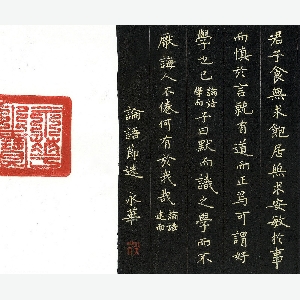 君子食無求飽居無求安敏於事
而慎於言就有道而正焉可謂好
學也已論語學而子曰默而識之學而不
厭誨人不倦何有於我哉論語述而
論語節選 永華